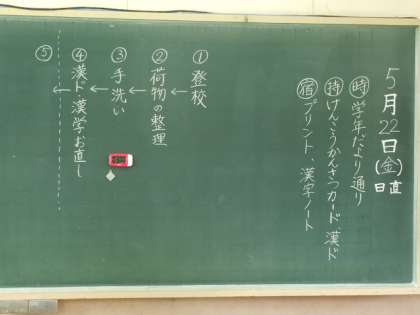 5月22日(金)
日直
時 学年だより通り
持 けんこうかんさつカード、漢ド
宿 プリント、漢字ノート
① 登校
② 荷物の整理
③ 手洗い
④ 漢ド・漢学お直し
⑤